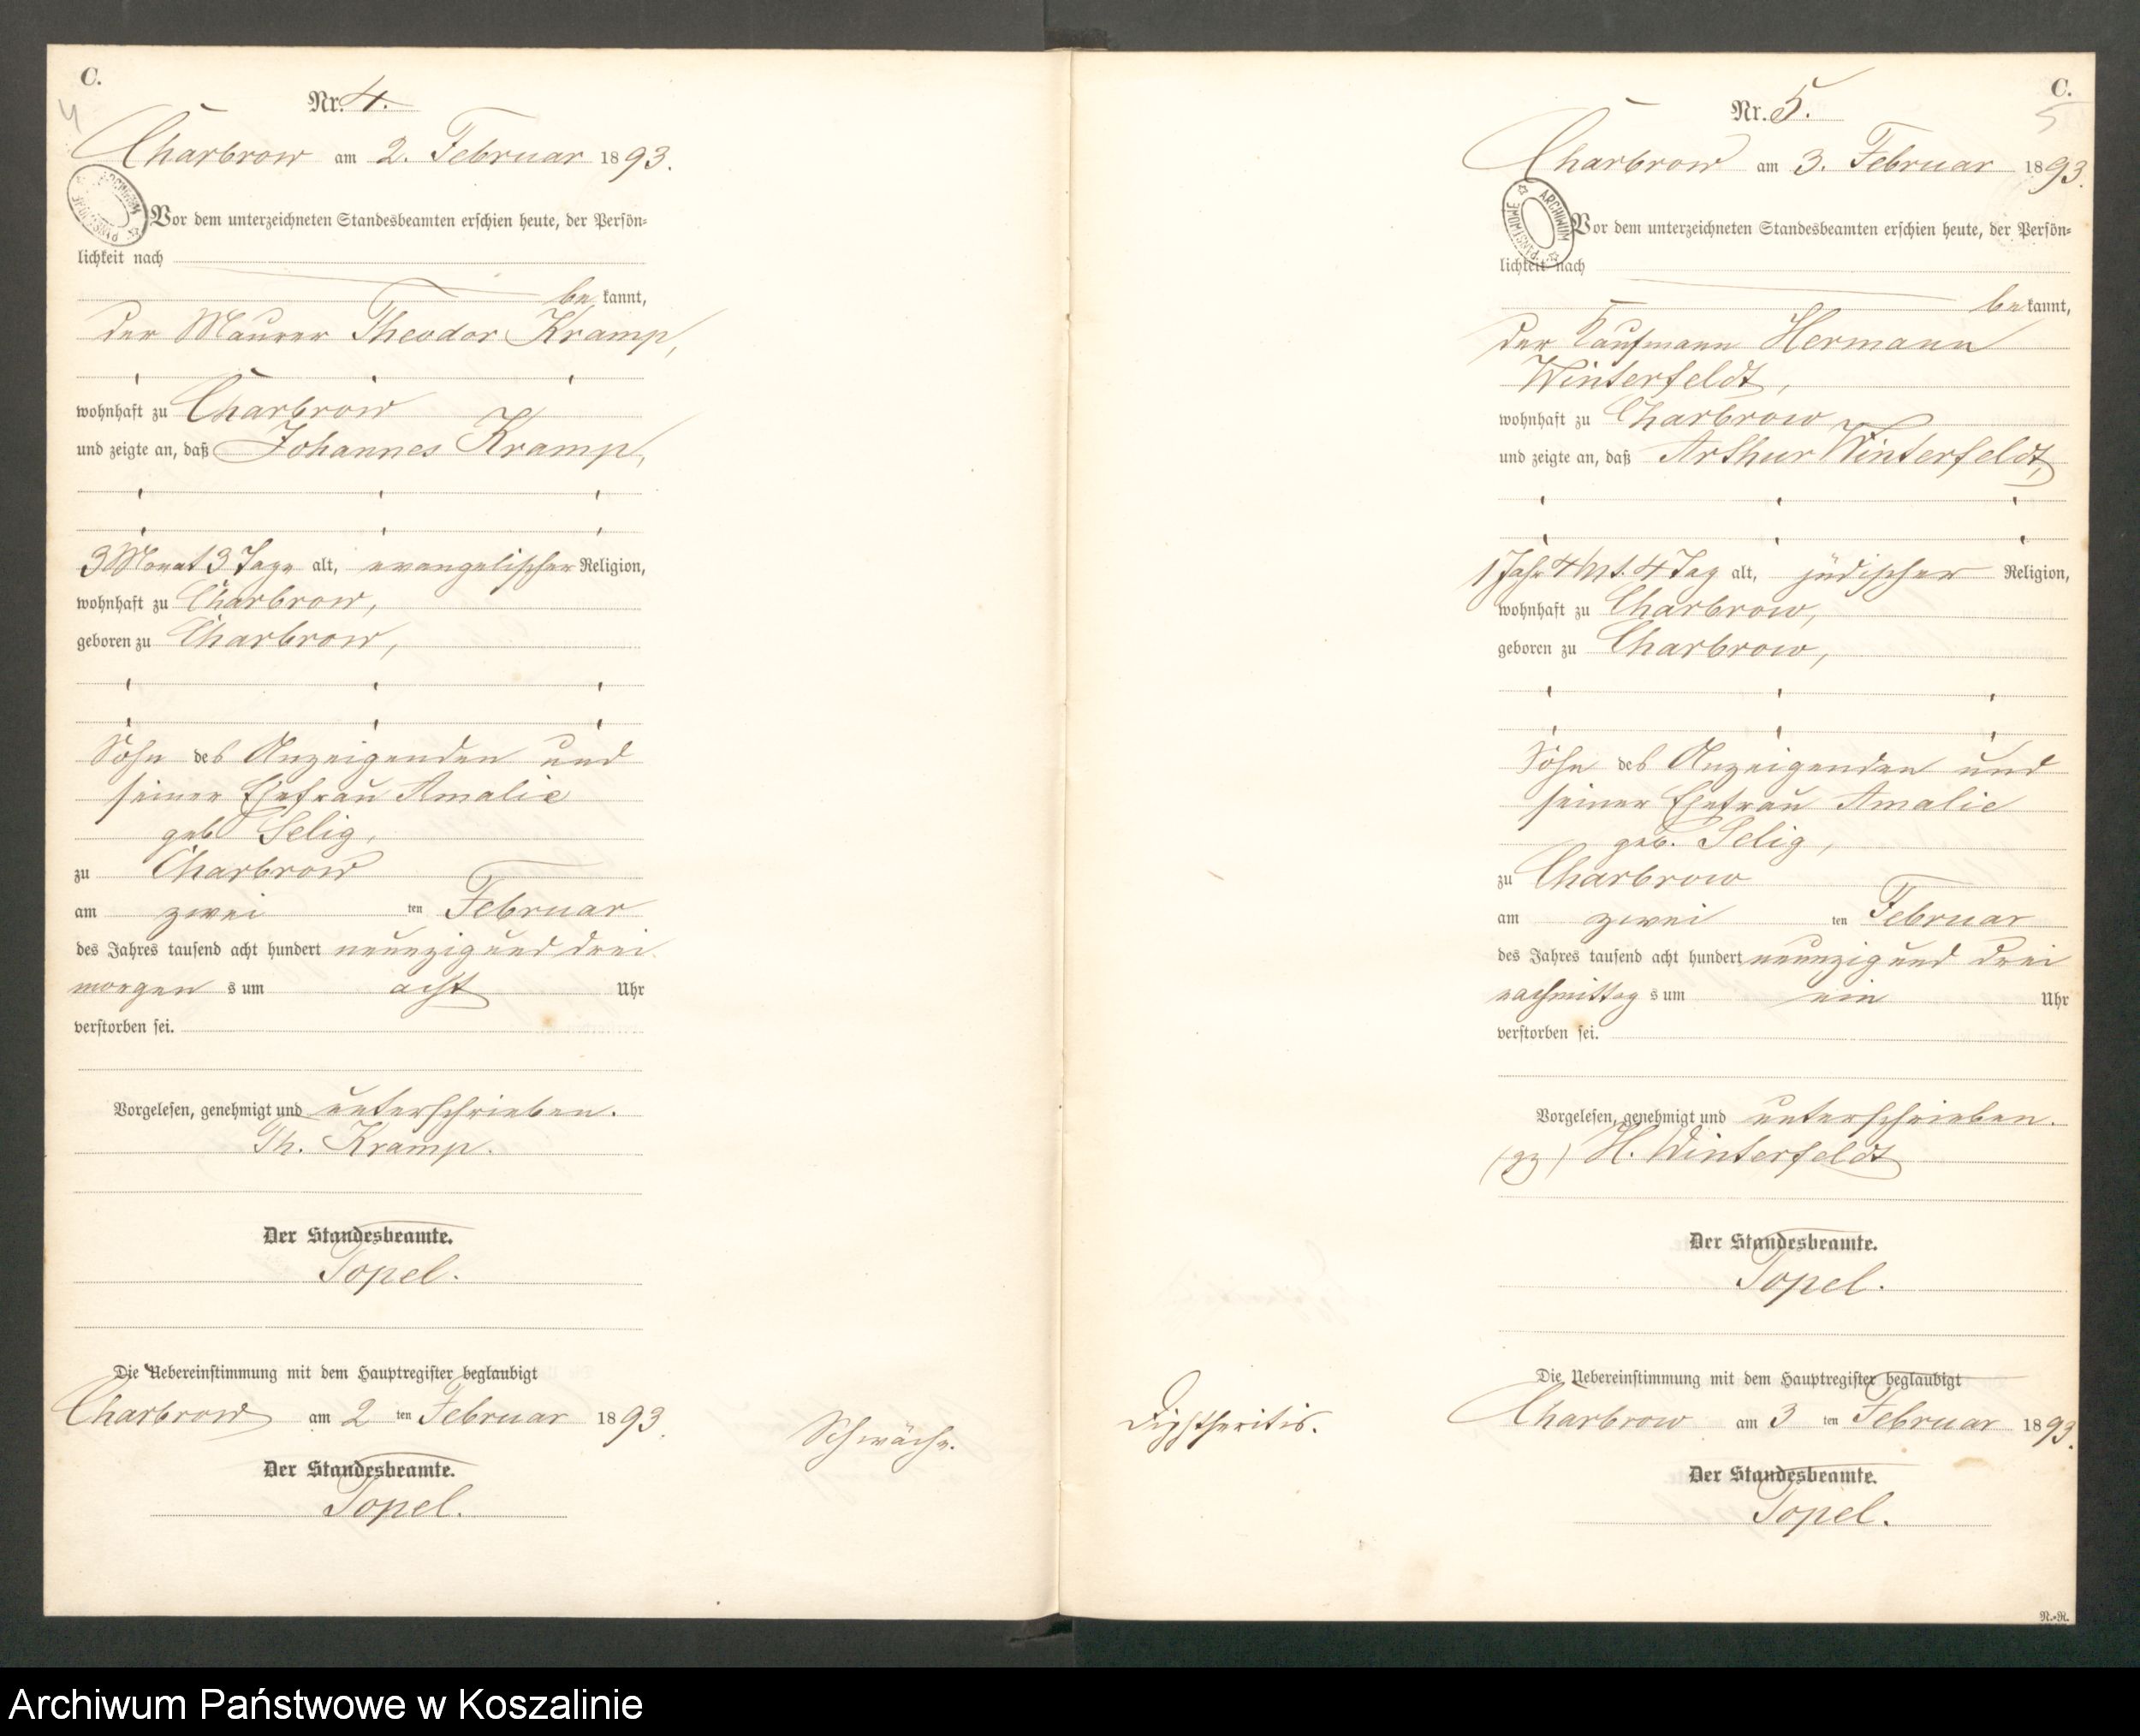 C.
4
Nr. 4.
Charbrow am 2. Februar 1893.
ARCHIWUM PAŃSTWOWE
Vor dem unterzeichneten Standesbeamten erschien heute, der Persön=
lichkeit nach
be kannt,
der Maurer Theodor Kramp,
wohnhaft zu Charbrow
und zeigte an, daß Johannes Kramp,
3 Monat 3 Tage alt, evangelischer Religion,
wohnhaft zu Charbrow,
geboren zu Charbrow,
Sohn des Anzeigenden und
seiner Ehefrau Amalie
geb. Selig,
zu Charbrow
am zwei ten Februar
des Jahres tausend acht hundert neunzig und drei
morgen s um acht Uhr
verstorben sei.
Vorgelesen, genehmigt und unterschrieben.
Th. Kramp.
Der Standesbeamte.
Topel.
Die Uebereinstimmung mit dem Hauptregister beglaubigt
Charbrow am 2 ten Februar 1893.
Der Standesbeamte.
Topel.
Schwäche.
C.
5
Nr. 5.
Charbrow am 3. Februar 1893.
ARCHIWUM PAŃSTWOWE
Vor dem unterzeichneten Standesbeamten erschien heute, der Persön=
lichkeit nach
be kannt,
der Kaufmann Hermann
Winterfeldt,
wohnhaft zu Charbrow
und zeigte an, daß Arthur Winterfeldt,
1 Jahr 4 Mt. 4 Tag alt, jüdischer Religion,
wohnhaft zu Charbrow,
geboren zu Charbrow,
Sohn des Anzeigenden und
seiner Ehefrau Amalie
geb. Selig,
zu Charbrow
am zwei ten Februar
des Jahres tausend acht hundert neunzig und drei
nachmittag s um ein Uhr
verstorben sei.
Vorgelesen, genehmigt und unterschrieben.
(gz) H. Winterfeldt
Der Standesbeamte.
Topel.
Die Uebereinstimmung mit dem Hauptregister beglaubigt
Charbrow am 3 ten Februar 1893.
Der Standesbeamte.
Topel.
Diphtheritis.
N.-R.
Archiwum Państwowe w Koszalinie